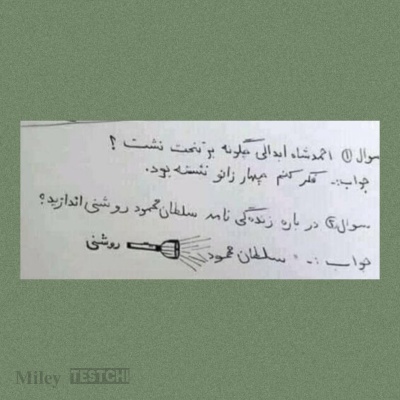 سوال ① احمدشاه ابدالی چگونه بر تخت نشست ؟
جواب:ـ فکر کنم چهار زانو نشسته بود.
سوال② در باره زندگی نامه سلطان محمود روشنی اندازید؟
جواب :ـ سلطان محمود روشنی
Miley TESTCHI